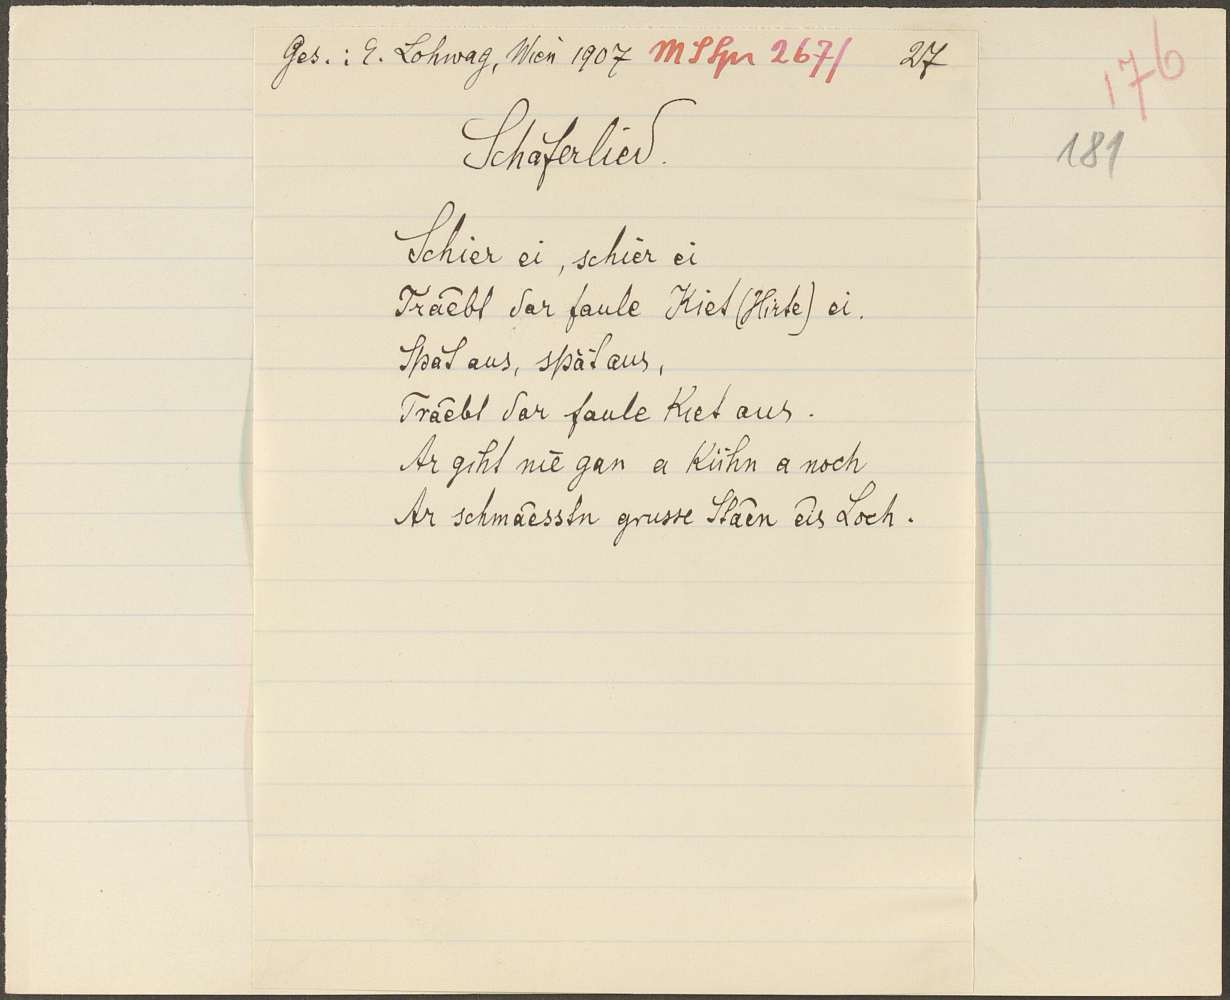 Ges.: E. Lohwag, Wien 1907 MSSpr 267/ 27
176
181
Schäferlied.
Schier ei, schier ei
Trāēbt dar faule Kiet (Hirte) ei.
Spät aus, spät aus,
Trāēbt dar faule Kiet aus.
Ar giht nīē gan a Kühn a noch
Ar schmāēsstn grusse Stāēn ēīs Loch.